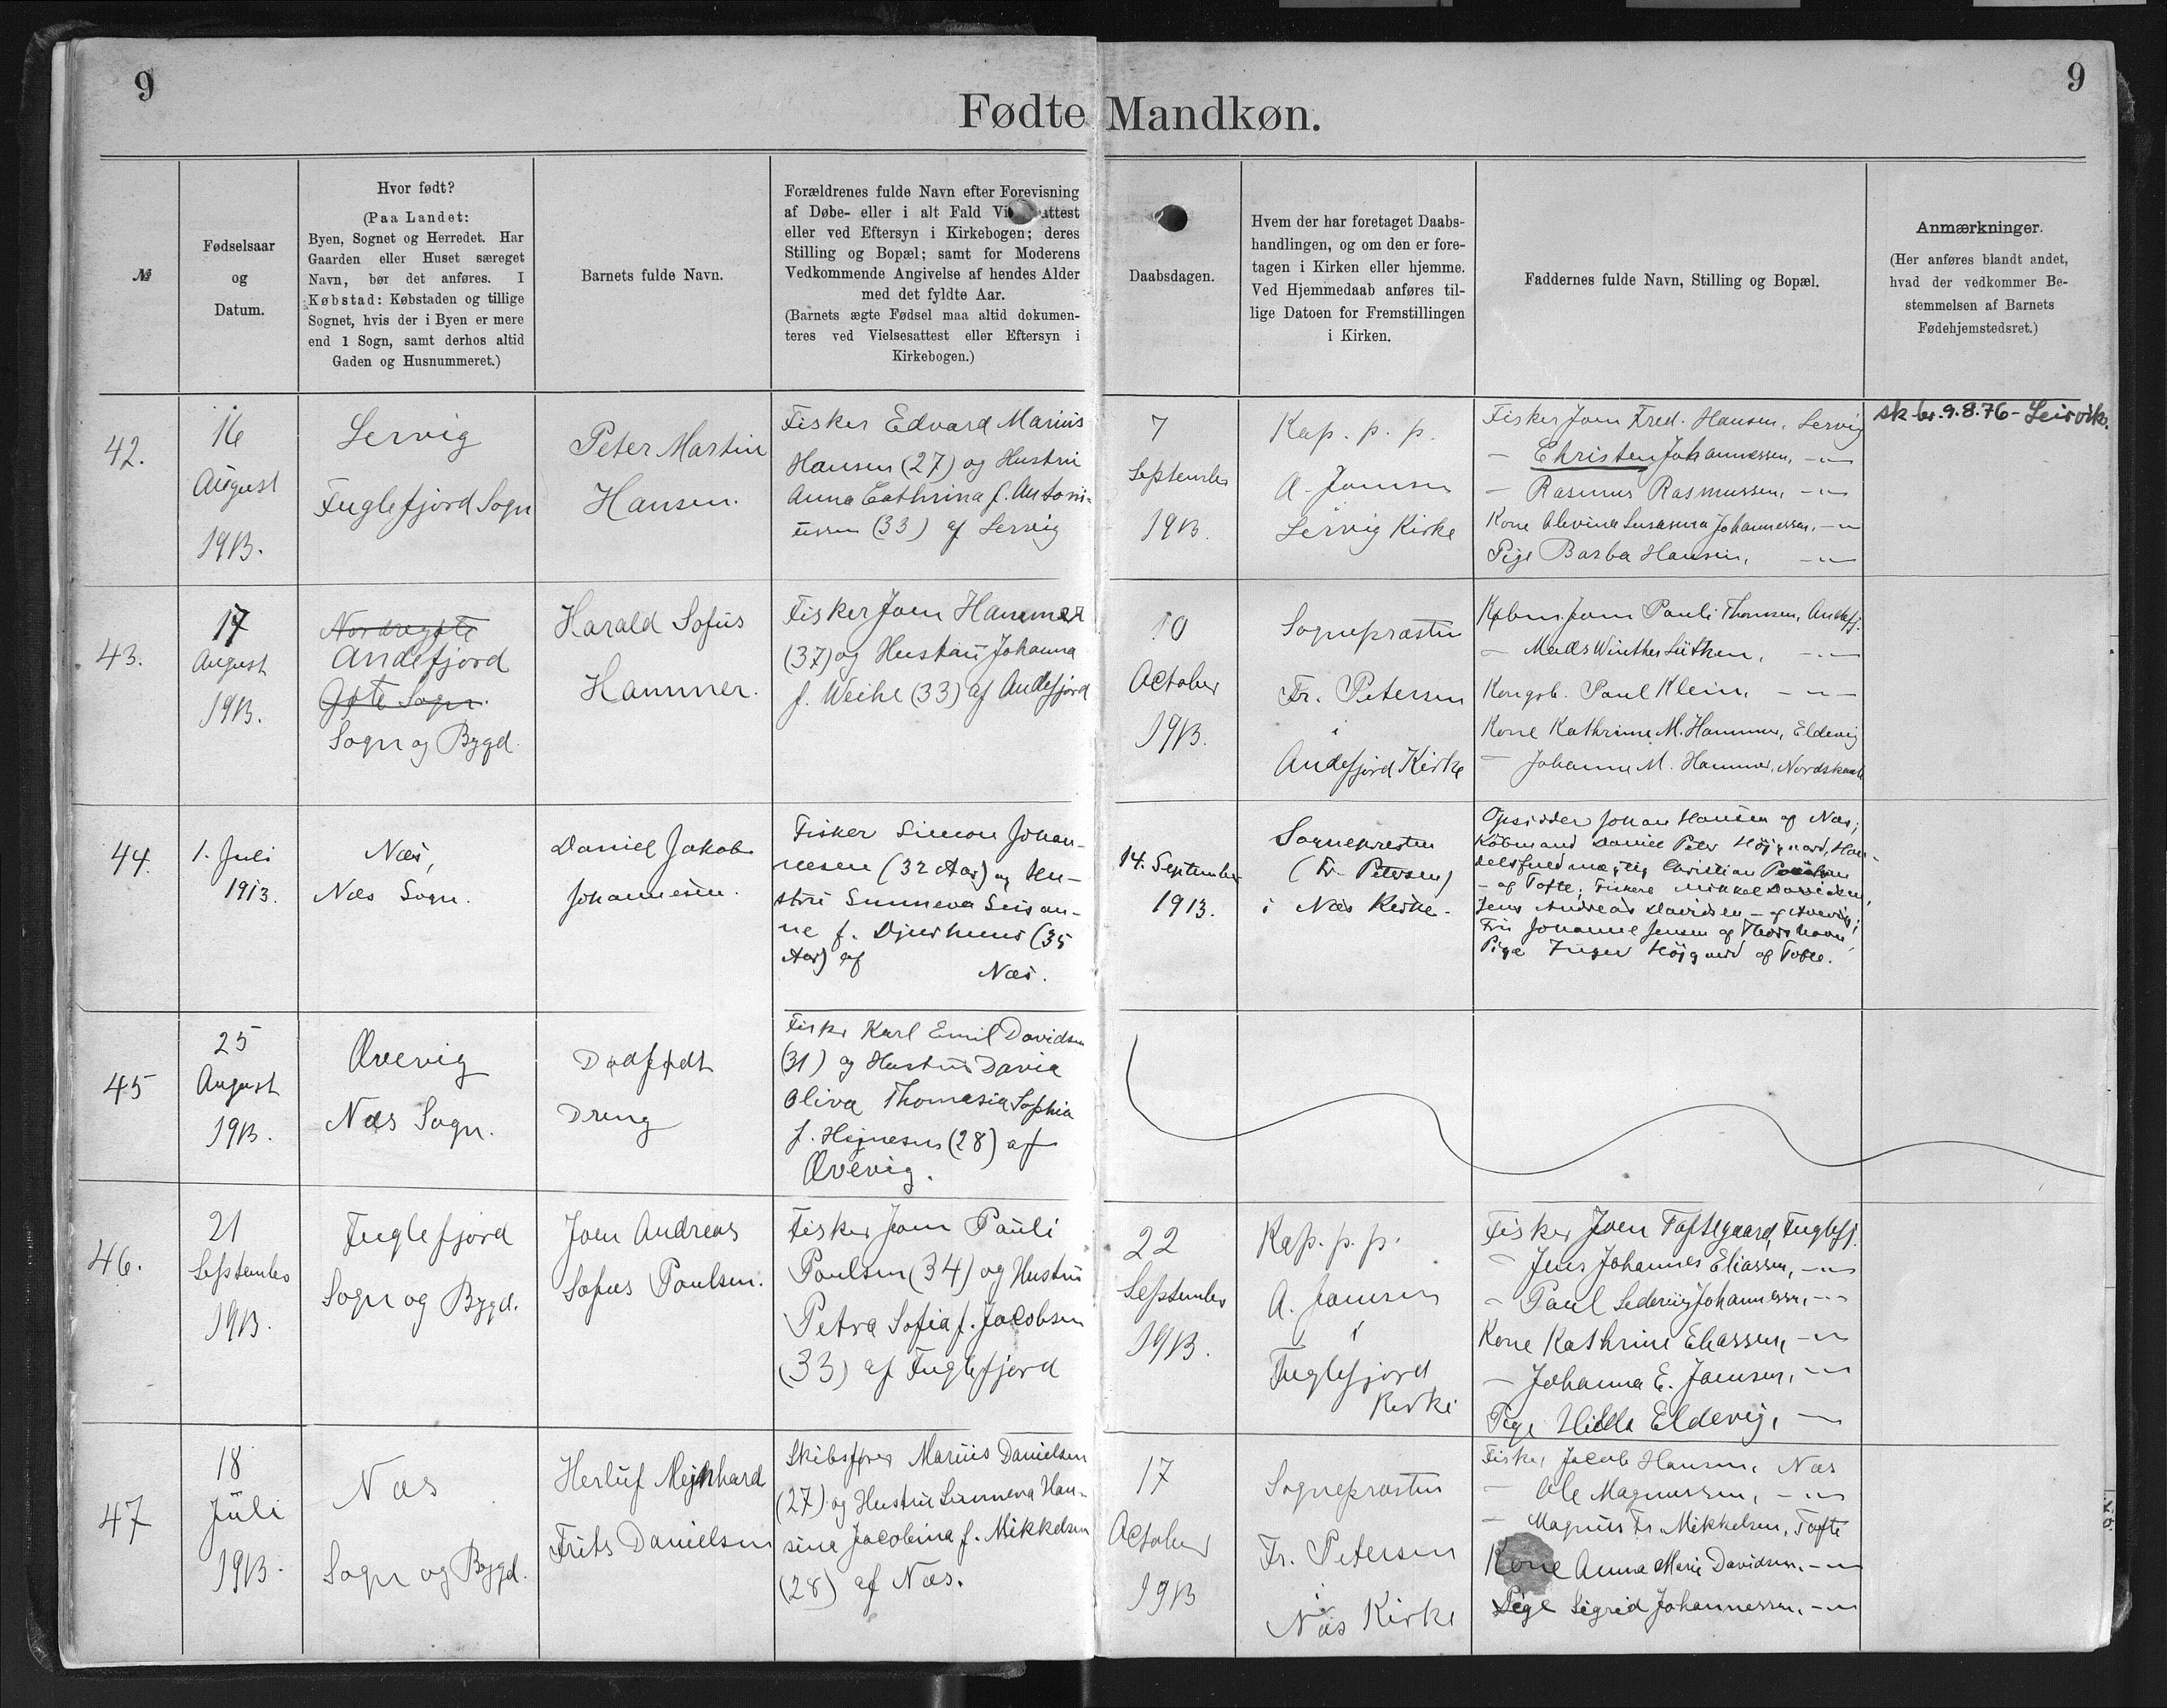 9
9
Fødte Mandkøn.
№
Fødselsaar
og
Datum.
Hvor født?
(Paa Landet:
Byen, Sognet og Herredet. Har
Gaarden eller Huset særeget
Navn, bør det anføres. I
Købstad: Købstaden og tillige
Sognet, hvis der i Byen er mere
end 1 Sogn, samt derhos altid
Gaden og Husnummeret.)
Barnets fulde Navn.
Forældrenes fulde Navn efter Forevisning
af Døbe- eller i alt Fald
eller ved Eftersyn i Kirkebogen; deres
Stilling og Bopæl; samt for Moderens
Vedkommende Angivelse af hendes Alder
med det fyldte Aar.
(Barnets ægte Fødsel maa altid dokumen-
teres ved Vielsesattest eller Eftersyn i
Kirkebogen.)
Daabsdagen.
Hvem der har foretaget Daabs-
handlingen, og om den er fore-
tagen i Kirken eller hjemme.
Ved Hjemmedaab anføres til-
lige Datoen for Fremstillingen
i Kirken.
Faddernes fulde Navn, Stilling og Bopæl.
Anmærkninger.
(Her anføres blandt andet,
hvad der vedkommer Be-
stemmelsen af Barnets
Fødehjemstedsret.)
42.
16
August
1913.
Lervig
Fuglefjord Sogn
Peter Martin
Hansen.
Fisker Edvard Marius
Hansen (27) og Hustru
Anna Cathrina f. Antoni-
ussen (33) af Lervig
7
September
1913.
Kap. p. p.
A. Joensen
Lervig Kirke
Fisker Joen Fred. Hansen, Lervig
- Christen Johannessen, -"-
- Rasmus Rasmussen, -"-
Kone Olevina Susanna Johannessen, -"-
Pige Barba Hansen, -"-
sk. br. 9.8.76 - Leirvik.
43.
17
August
1913.
Nordregøte
Andefjord
Gøte Sogn.
Sogn og Bygd.
Harald Sofus
Hammer.
Fisker Joen Hammer
(37) og Hustru Johanna
f. Weihe (33) af Andefjord
10
October
1913.
Sognepræsten
Fr. Petersen
i
Andefjord Kirke
Købm. Joen Pauli Thomsen, Andefj.
- Mads Winther Lützen, -"-
Kongsb. Paul Klein, -"-
Kone Kathrine M. Hammer, Eldevig
- Johanne M. Hammer, Nordskaale
44.
1. Juli
1913.
Næs,
Næs Sogn.
Daniel Jakob
Johannesen.
Fisker Simon Johan-
nesen (32 Aar) og Hu-
stru Sunneva Susan-
ne f. Djurhuus (35
Aar) af
Næs.
14. September
1913.
Sognepresten
(Fr. Petersen)
i Næs Kirke.
Opsidder Johan Hansen af Næs;
Købmand Daniel Peter Højgaard, Han-
delsfuldmægtig Christian
- af Tofte; Fiskere Mikkel Davidsen,
Jens Andreas Davidsen - af Ørevig;
Fru Johanne Jensen af Thorshavn,
Pige Inger Højgaard af Tofte.
45
25
August
1913.
Ørevig
Næs Sogn.
Dødfødt
Dreng
Fisker Karl Emil Davidsen
(31) og Hustru Davia
Oliva Thomasia Sophia
f. Hejnesen (28) af
Ørevig.
46.
21
September
1913.
Fuglefjord
Sogn og Bygd.
Joen Andreas
Sofus Poulsen.
Fisker Joen Pauli
Poulsen (34) og Hustru
Petra Sofia f. Jacobsen
(33) af Fuglefjord
22
September
1913.
Kap. p. p.
A. Joensen
i
Fuglefjord
Kirke
Fisker Joen Toftegaard, Fuglefj.
- Jens Johannes Eliassen, -"-
- Paul Johannessen, -"-
Kone Kathrine Eliassen, -"-
- Johanna E. Joensen, -"-
Pige Hilda Eldevig, -"-
47
18
Juli
1913.
Næs
Sogn og Bygd.
Herluf Mejnhard
Frits Danielsen
Skibsfører Marius Danielsen
(27) og Hustru Sunneva Han-
sina Jacobina f. Mikkelsen
(28) af Næs.
17
October
1913
Sognepræsten
Fr. Petersen
i
Næs Kirke
Fisker Jacob Hansen, Næs
- Ole Magnussen, -"-
- Magnus Fr. Mikkelsen, Tofte
Kone Anna Marie Davidsen, -"-
Pige Sigrid Johannessen, -"-